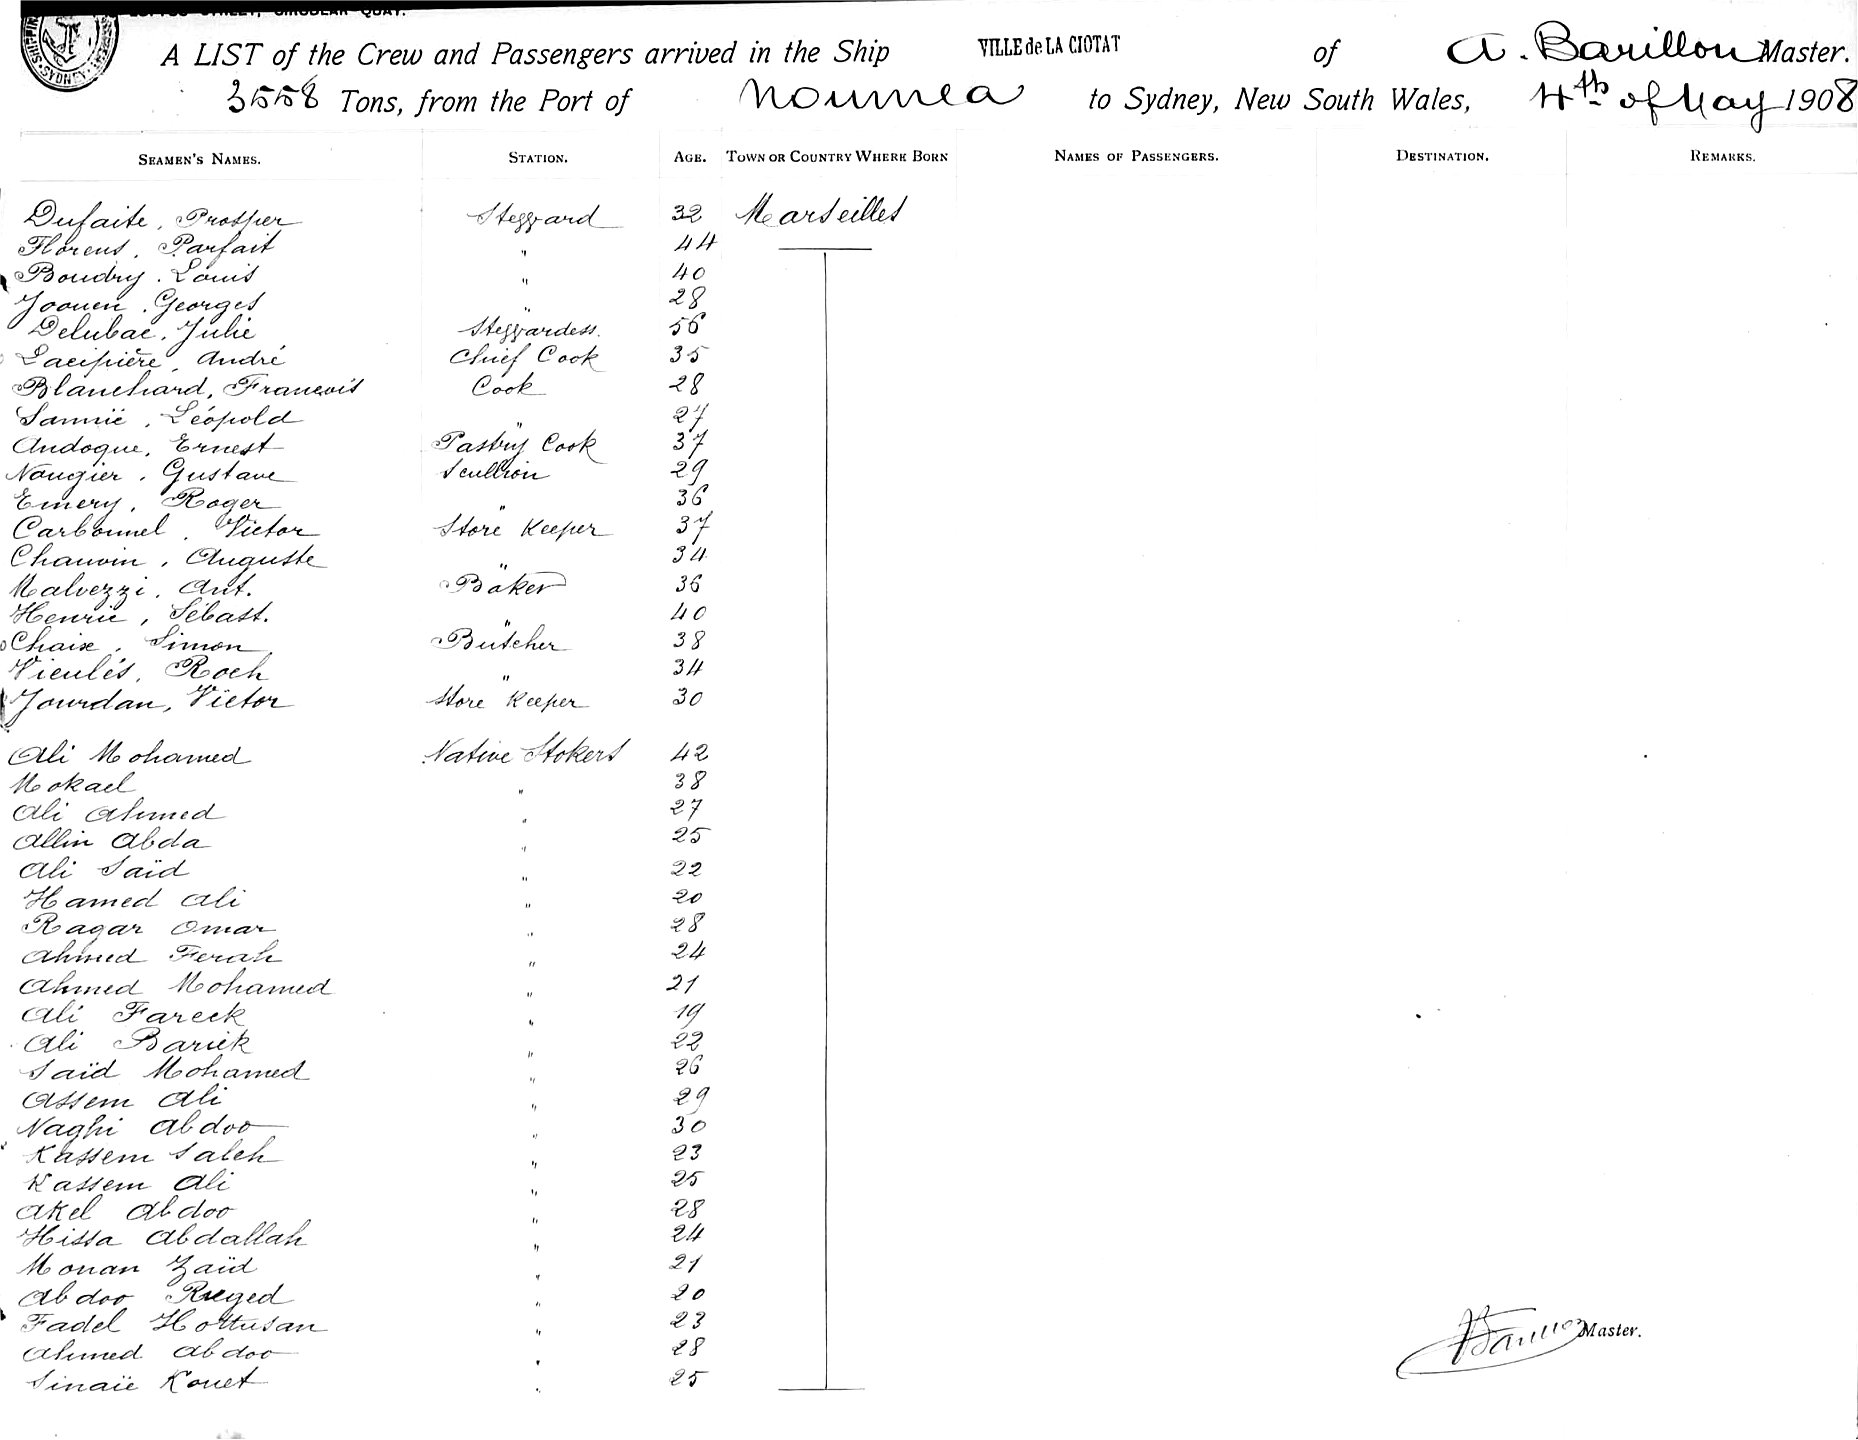 LOFTUS STREET, CIRCULAR QUAY.
SYDNEY
A LIST of the Crew and Passengers arrived in the Ship VILLE de LA CIOTAT of A. Barillon Master.
3558 Tons, from the Port of Noumea to Sydney, New South Wales, 4th of May 1908
SEAMEN'S NAMES. STATION. AGE. TOWN OR COUNTRY WHERE BORN NAMES OF PASSENGERS. DESTINATION. REMARKS.
Dufaite, Prosper Steward 32 Marseilles
Florens, Parfait " 44
Boudry, Louis " 40
Joouen, Georges " 28
Delubac, Julie Stewardess. 56
Lacipière, André Chief Cook 35
Blanchard, François Cook 28
Sannié, Léopold " 27
Andoque, Ernest Pastry Cook 37
Nougier, Gustave Scullion 29
Emery, Roger " 36
Carbonnel, Victor Store Keeper 37
Chauvin, Auguste " 34
Malvezzi, Ant. Baker 36
Henric, Sébast. " 40
Chaix, Simon Butcher 38
Vieulés, Roch " 34
Jourdan, Victor Store Keeper 30
Ali Mohamed Native Stokers 42
Mokael " 38
Ali Ahmed " 27
Allin Abda " 25
Ali Saïd " 22
Hamed Ali " 20
Ragar Omar " 28
Ahmed Ferah " 24
Ahmed Mohamed " 21
Ali Fareck " 19
Ali Bariek " 22
Saïd Mohamed " 26
Assem Ali " 29
Naghi Abdoo " 30
Kassem Saleh " 23
Kassem Ali " 25
Akel Abdoo " 28
Hissa Abdallah " 24
Monan Zaïd " 21
Abdoo Rieged " 20
Fadel Hottusan " 23
Ahmed Abdoo " 28
Sinaïe Kouet " 25
Barillon Master.